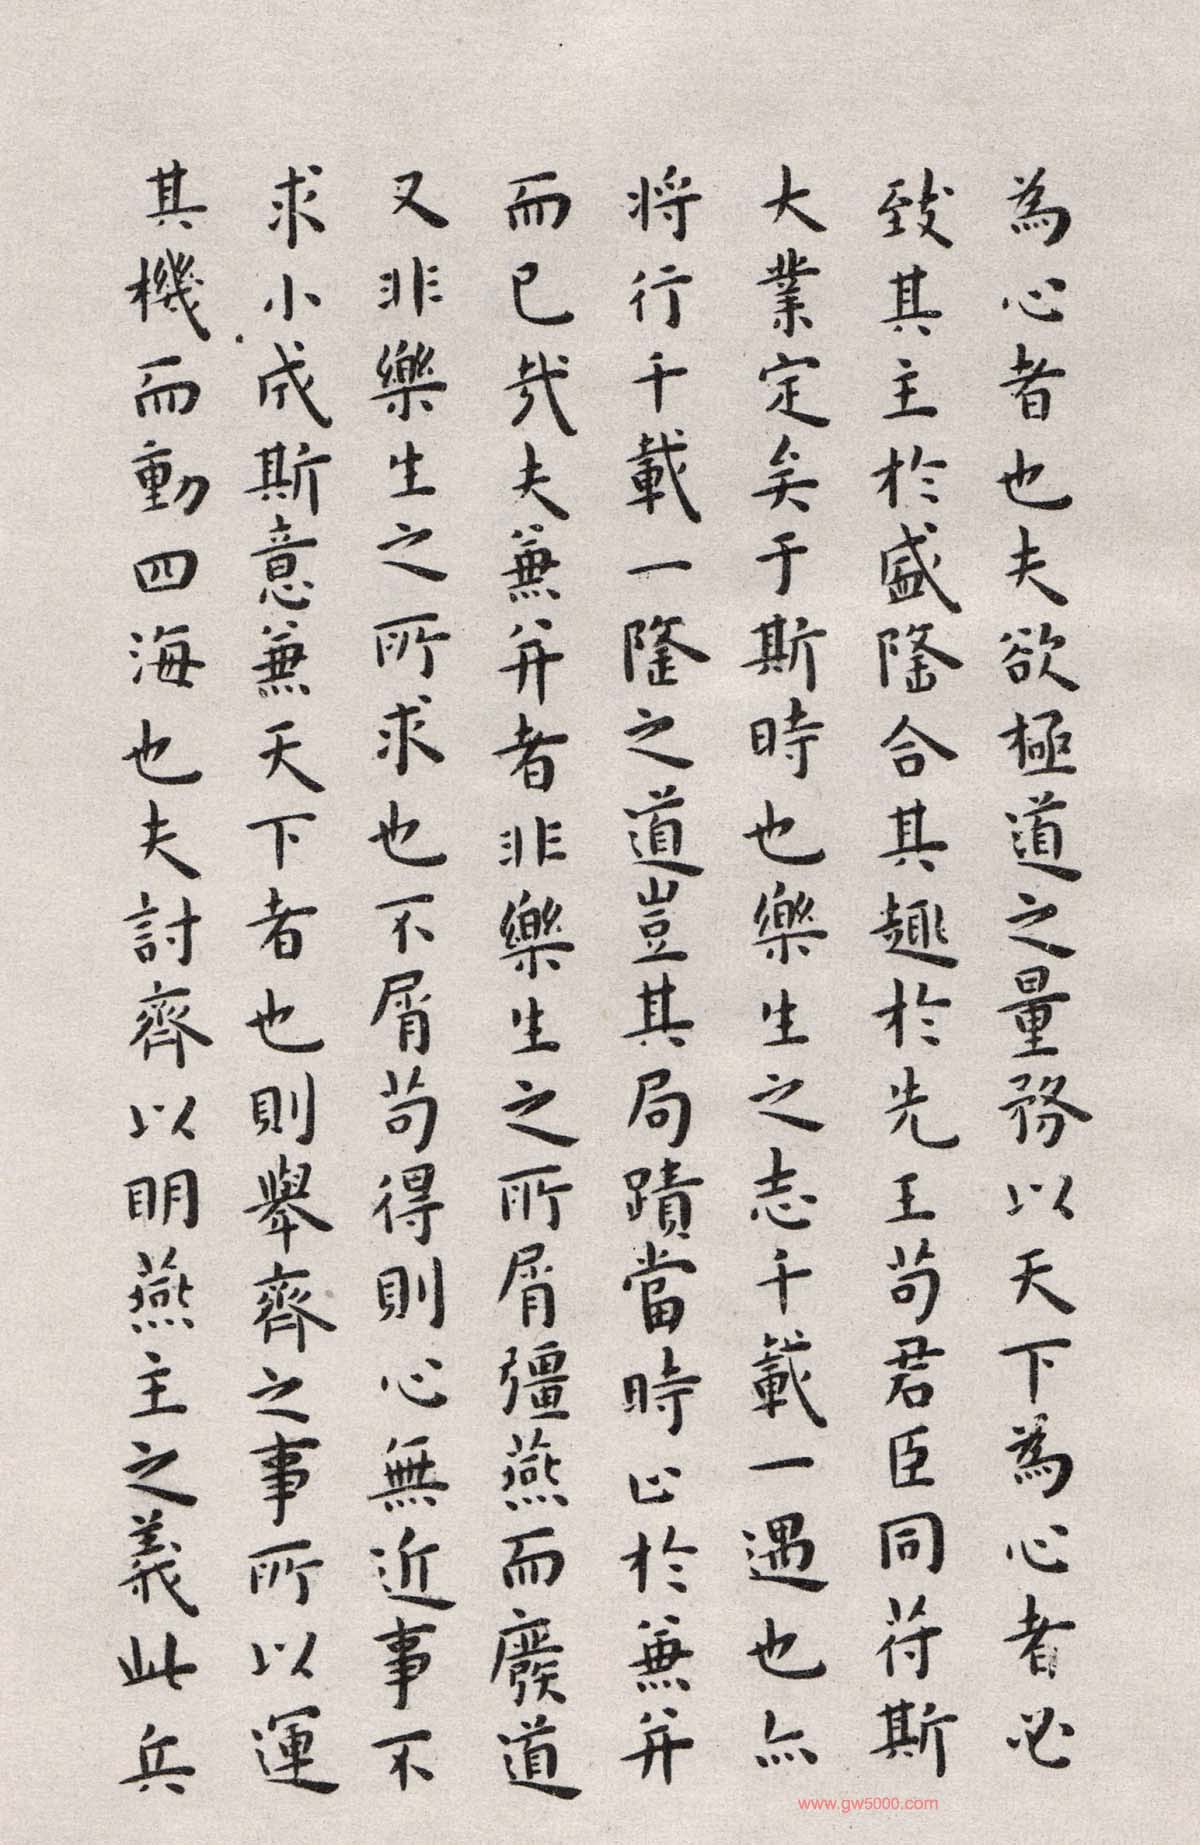 為心者也夫欲極道之量務以天下為心者必
致其主於盛隆合其趣於先王苟君臣同符斯
大業定矣于斯時也樂生之志千載一遇也亦
將行千載一隆之道豈其局蹟當時止於兼并
而已哉夫兼并者非樂生之所屑彊燕而廢道
又非樂生之所求也不屑苟得則心無近事不
求小成斯意兼天下者也則舉齊之事所以運
其機而動四海也夫討齊以明燕主之義此兵
www.gw5000.com